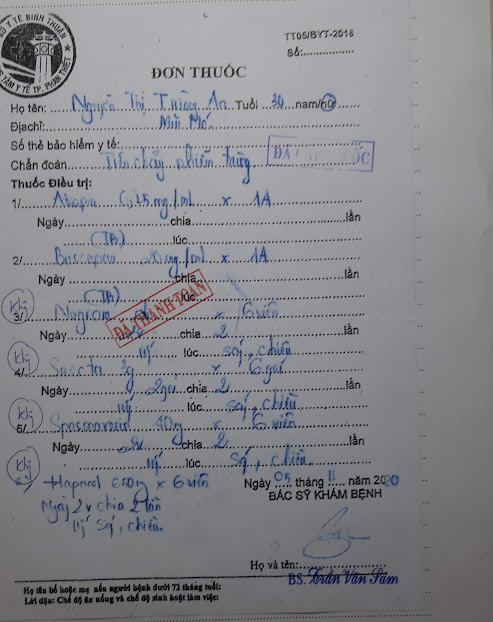 SỞ Y TẾ BÌNH THUẬN
TÂM Y TẾ TP. PHAN THIẾT
TT05/BYT-2016
Số:
ĐƠN THUỐC
Họ tên: Nguyễn Thị An Tuổi 30 nam/nữ
Địa chỉ: Mũi Né
Số thẻ bảo hiểm y tế:
ĐÃ
Chẩn đoán Tiêu chảy nhiễm trùng
Thuốc Điều trị:
1/ Atropin 0,25mg/ml x 1A
Ngày chia lần
(TB) lúc
2/ Buscopan 20mg/ml x 1A
Ngày chia lần
(TB) lúc
ĐÃ THANH TOÁN
3/ x 6 viên
Ngày chia 2
lúc chiều
4/ Smecta 3g x 6 gói
Ngày 2 gói chia 2 lần
lúc chiều
5/ 40mg x 6 viên
Ngày 2v chia 2 lần
lúc chiều
6/ Hapacol 650mg x 6 viên
Ngày 2v chia 2 lần
chiều
Ngày 05 tháng 11 năm 2020
BÁC SỸ KHÁM BỆNH
Họ và tên:
BS. Trần Văn
Họ tên bố hoặc mẹ nếu người bệnh dưới 72 tháng tuổi:
Lời dặn: Chế độ ăn uống và chế độ sinh hoạt làm việc: